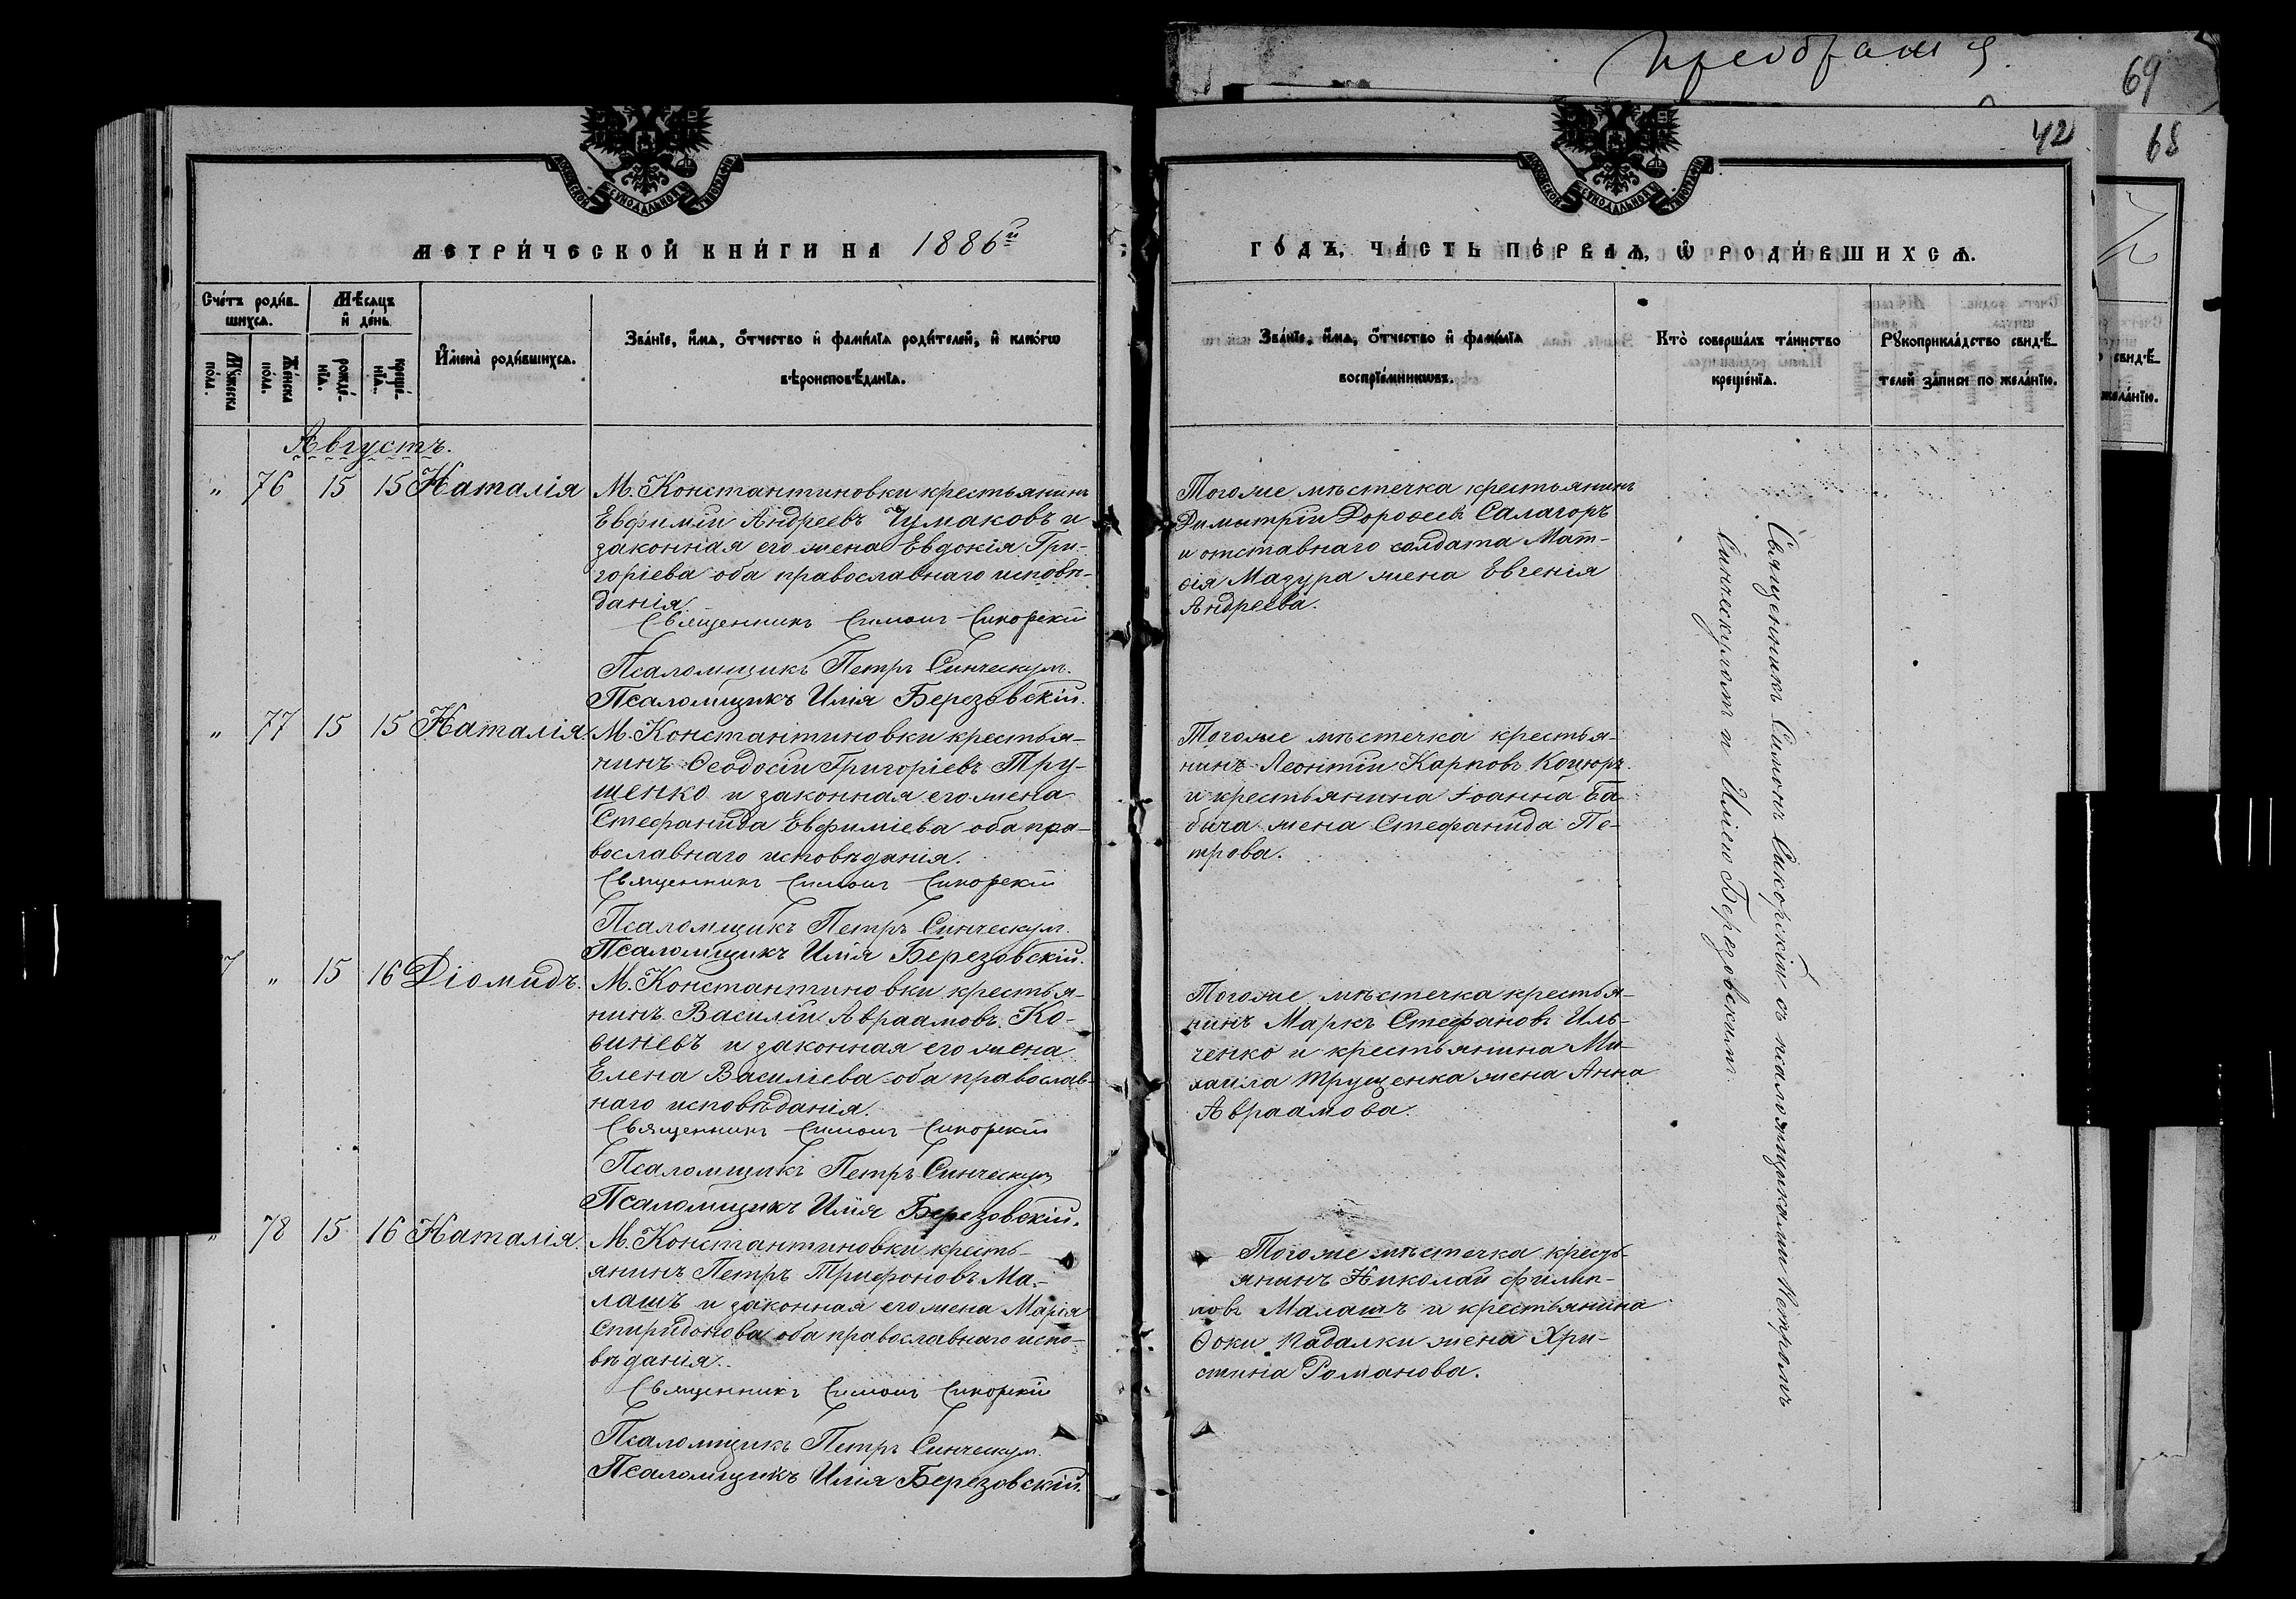 Преображ
69
68
42
МОСКОВСКОЙ СѴНОДАЛЬНОЙ ТИПОГРАФІИ
МОСКОВСКОЙ СѴНОДАЛЬНОЙ ТИПОГРАФІИ
МЕТРИ́ЧЕСКОЙ КНИ́ГИ НА 1886й
ГО́ДЪ, ЧА́СТЬ ПЕ́РВАѦ, Ѡ РОДИ́ВШИХСѦ.
Сче́тъ роди́в-
шихсѧ.
Мꙋ́жеска по́ла.
Же́нска по́ла.
Мѣ́сѧцъ и де́нь
рожде́-нїѧ.
креще́-нїѧ.
Имена̀ роди́вшихсѧ.
Зва́нїе, и́мѧ, о́тчество и фами́лїѧ роди́телей, и како́гѡ
вѣроисповѣ́данїѧ.
Зва́нїе, и́мѧ, о́тчество и фами́лїѧ
воспрїе́мникѡвъ.
Кто̀ соверша́лъ та́инство
креще́нїѧ.
Рꙋкоприкла́дство свидѣ́-
телей за́писи по жела́нїю.
свидѣ́-
жела́нїю.
Августъ.
" 76 15 15 Наталія
М. Константиновки крестьянинъ
Евфимій Андреевъ Чумаковъ и
законная его жена Евдокія Гри-
горіева оба православнаго исповѣ-
данія.
Священникъ Симонъ Сикорскій
Псаломщикъ Петръ Синческулъ.
Псаломщикъ Илія Березовскій.
Тогоже мѣстечка крестьянинъ
Димитрій Дороѳеевъ Салагоръ
и отставнаго солдата Мат-
ѳія Мазура жена Евгенія
Андреева.
" 77 15 15 Наталія.
М. Константиновки крестья-
нинъ Ѳеодосій Григоріевъ Тру-
шенко и законная его жена
Стефанида Евфиміева оба пра-
вославнаго исповѣданія.
Священникъ Симонъ Сикорскій
Псаломщикъ Петръ Синческулъ.
Псаломщикъ Илія Березовскій.
Тогоже мѣстечка крестья-
нинъ Леонтій Карповъ Коцюръ
и крестьянина Іоанна Ба-
бича жена Стефанида Пе-
трова.
7 " 15 16 Діомидъ.
М. Константиновки крестья-
нинъ Василій Авраамовъ Ко-
синевъ и законная его жена
Елена Василіева оба православ-
наго исповѣданія.
Священникъ Симонъ Сикорскій
Псаломщикъ Петръ Синческулъ
Псаломщикъ Илія Березовскій.
Тогоже мѣстечка крестья-
нинъ Маркъ Стефановъ Иль-
ченко и крестьянина Ми-
хаила Трущенка жена Анна
Авраамова.
" 78 15 16 Наталія.
М. Константиновки кресть-
янинъ Петръ Трифоновъ Ма-
лашъ и законная его жена Марія
Спиридонова оба православнаго испо-
вѣданія.
Священникъ Симонъ Сикорскій
Псаломщикъ Петръ Синческулъ.
Псаломщикъ Илія Березовскій.
Тогоже мѣстечка кресть-
янинъ Николай Филип-
повъ Малашъ и крестьянина
Ѳоки Падалки жена Хри-
стина Романова.
Священникъ Симонъ Сикорскій съ псаломщиками Петромъ
Синческуломъ и Иліею Березовскимъ.